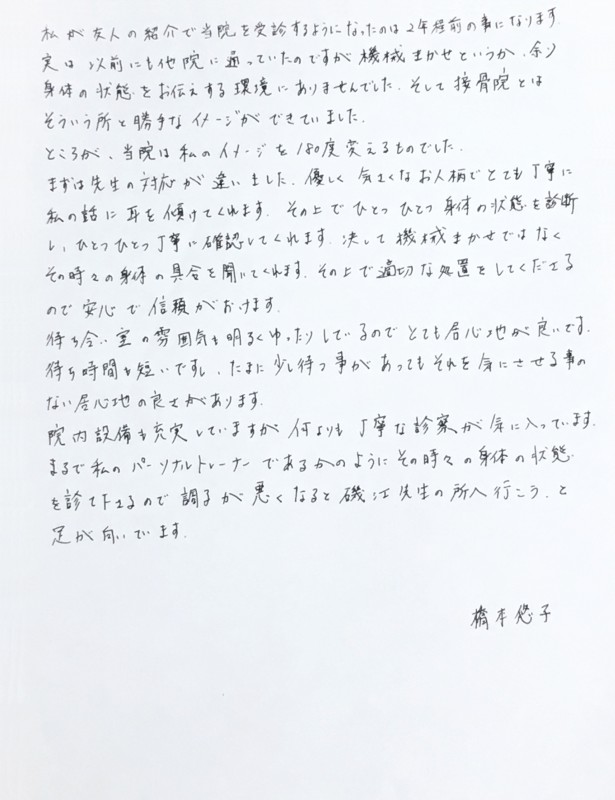 私が友人の紹介で当院を受診するようになったのは2年程前の事になります.
実は以前にも他院に通っていたのですが機械まかせというか、余り
身体の状態をお伝えする環境にありませんでした. そして接骨院とは
そういう所と勝手なイメージができていました.
ところが、当院は私のイメージを180度変えるものでした.
まずは先生の対応が違いました. 優しく気さくなお人柄でとても丁寧に
私の話に耳を傾けてくれます. その上でひとつひとつ身体の状態を診断
し、ひとつひとつ丁寧に確認してくれます. 決して機械まかせではなく
その時々の身体の具合を聞いてくれます. その上で適切な処置をしてくださる
ので安心で信頼がおけます.
待ち合い室の雰囲気も明るくゆったりしているのでとても居心地が良いです.
待ち時間も短いですし、たまに少し待つ事があってもそれを気にさせる事の
ない居心地の良さがあります.
院内設備も充実していますが何よりも丁寧な診察が気に入っています.
まるで私のパーソナルトレーナーであるかのようにその時々の身体の状態
を診て下さるので調子が悪くなると磯江先生の所へ行こう、と
足が向いています.
橋本悠子